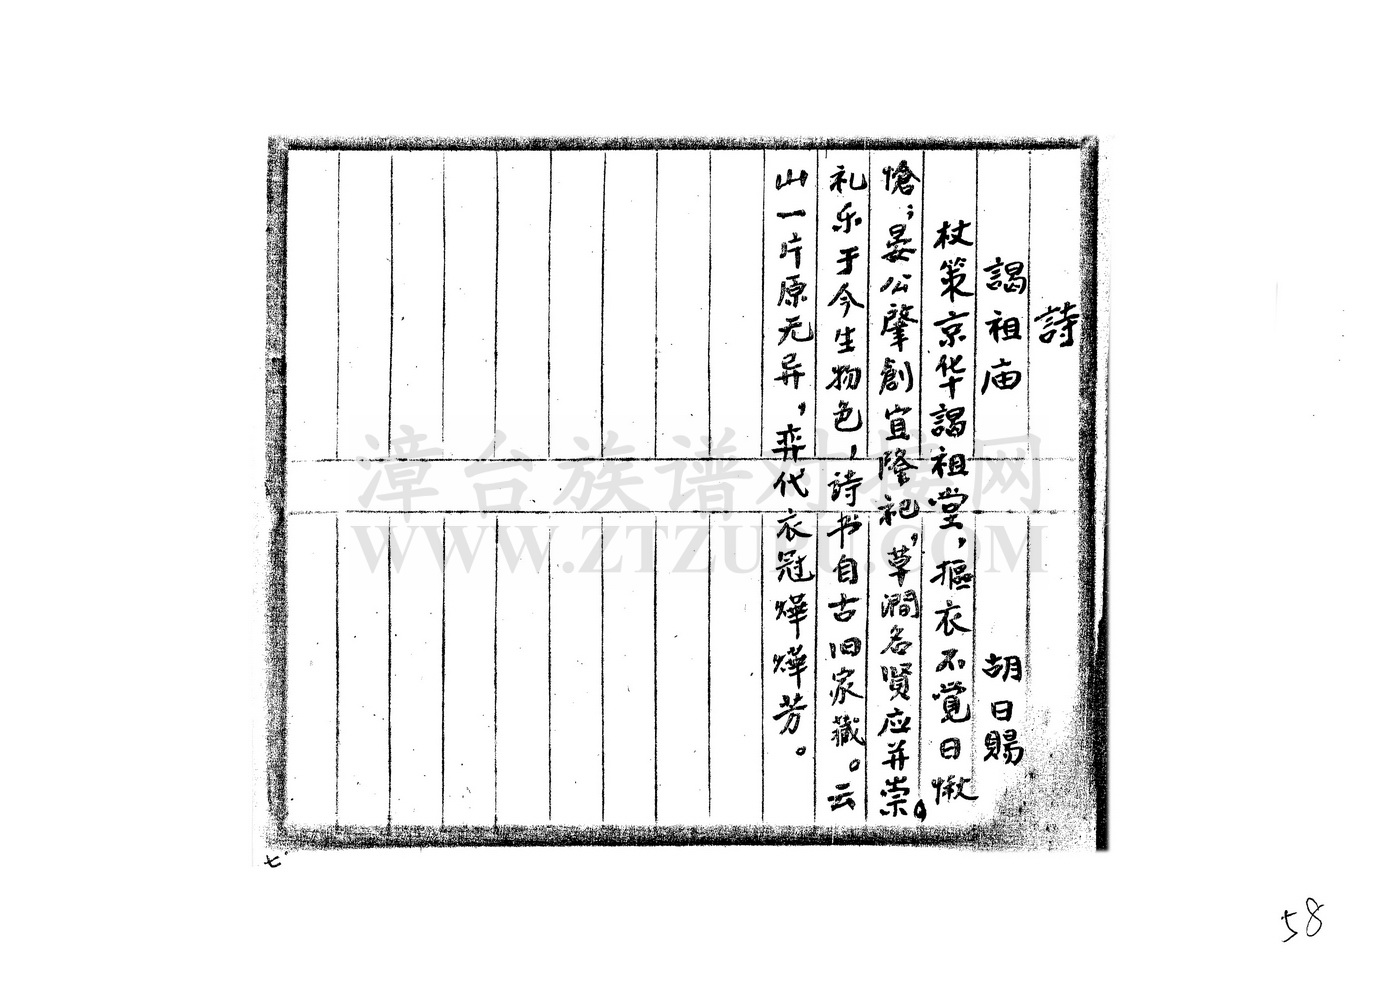 詩
謁祖庙 胡日賜
杖策京华謁祖堂，摳衣不覚日愀
愴；晏公肇創宜隆祀，草澗名賢应并崇。
礼乐于今生物色，詩书自古旧家藏。云
山一片原无异，弈代衣冠燁燁芳。
七
58
漳台族谱对接网
WWW.ZTZUPU.COM